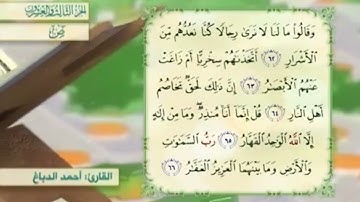 الجزء الثالث والعشرون
ص
وَقَالُوا۟ مَا لَنَا لَا نَرَىٰ رِجَالًا كُنَّا نَعُدُّهُم مِّنَ
ٱلْأَشْرَارِ ﴿٦٢﴾ أَتَّخَذْنَٰهُمْ سِخْرِيًّا أَمْ زَاغَتْ
عَنْهُمُ ٱلْأَبْصَٰرُ ﴿٦٣﴾ إِنَّ ذَٰلِكَ لَحَقٌّ تَخَاصُمُ
أَهْلِ ٱلنَّارِ ﴿٦٤﴾ قُلْ إِنَّمَآ أَنَا۠ مُنذِرٌ ۖ وَمَا مِنْ إِلَٰهٍ
إِلَّا ٱللَّهُ ٱلْوَٰحِدُ ٱلْقَهَّارُ ﴿٦٥﴾ رَبُّ ٱلسَّمَٰوَٰتِ
وَٱلْأَرْضِ وَمَا بَيْنَهُمَا ٱلْعَزِيزُ ٱلْغَفَّٰرُ ﴿٦٦﴾
القارئ: أحمد الدباغ